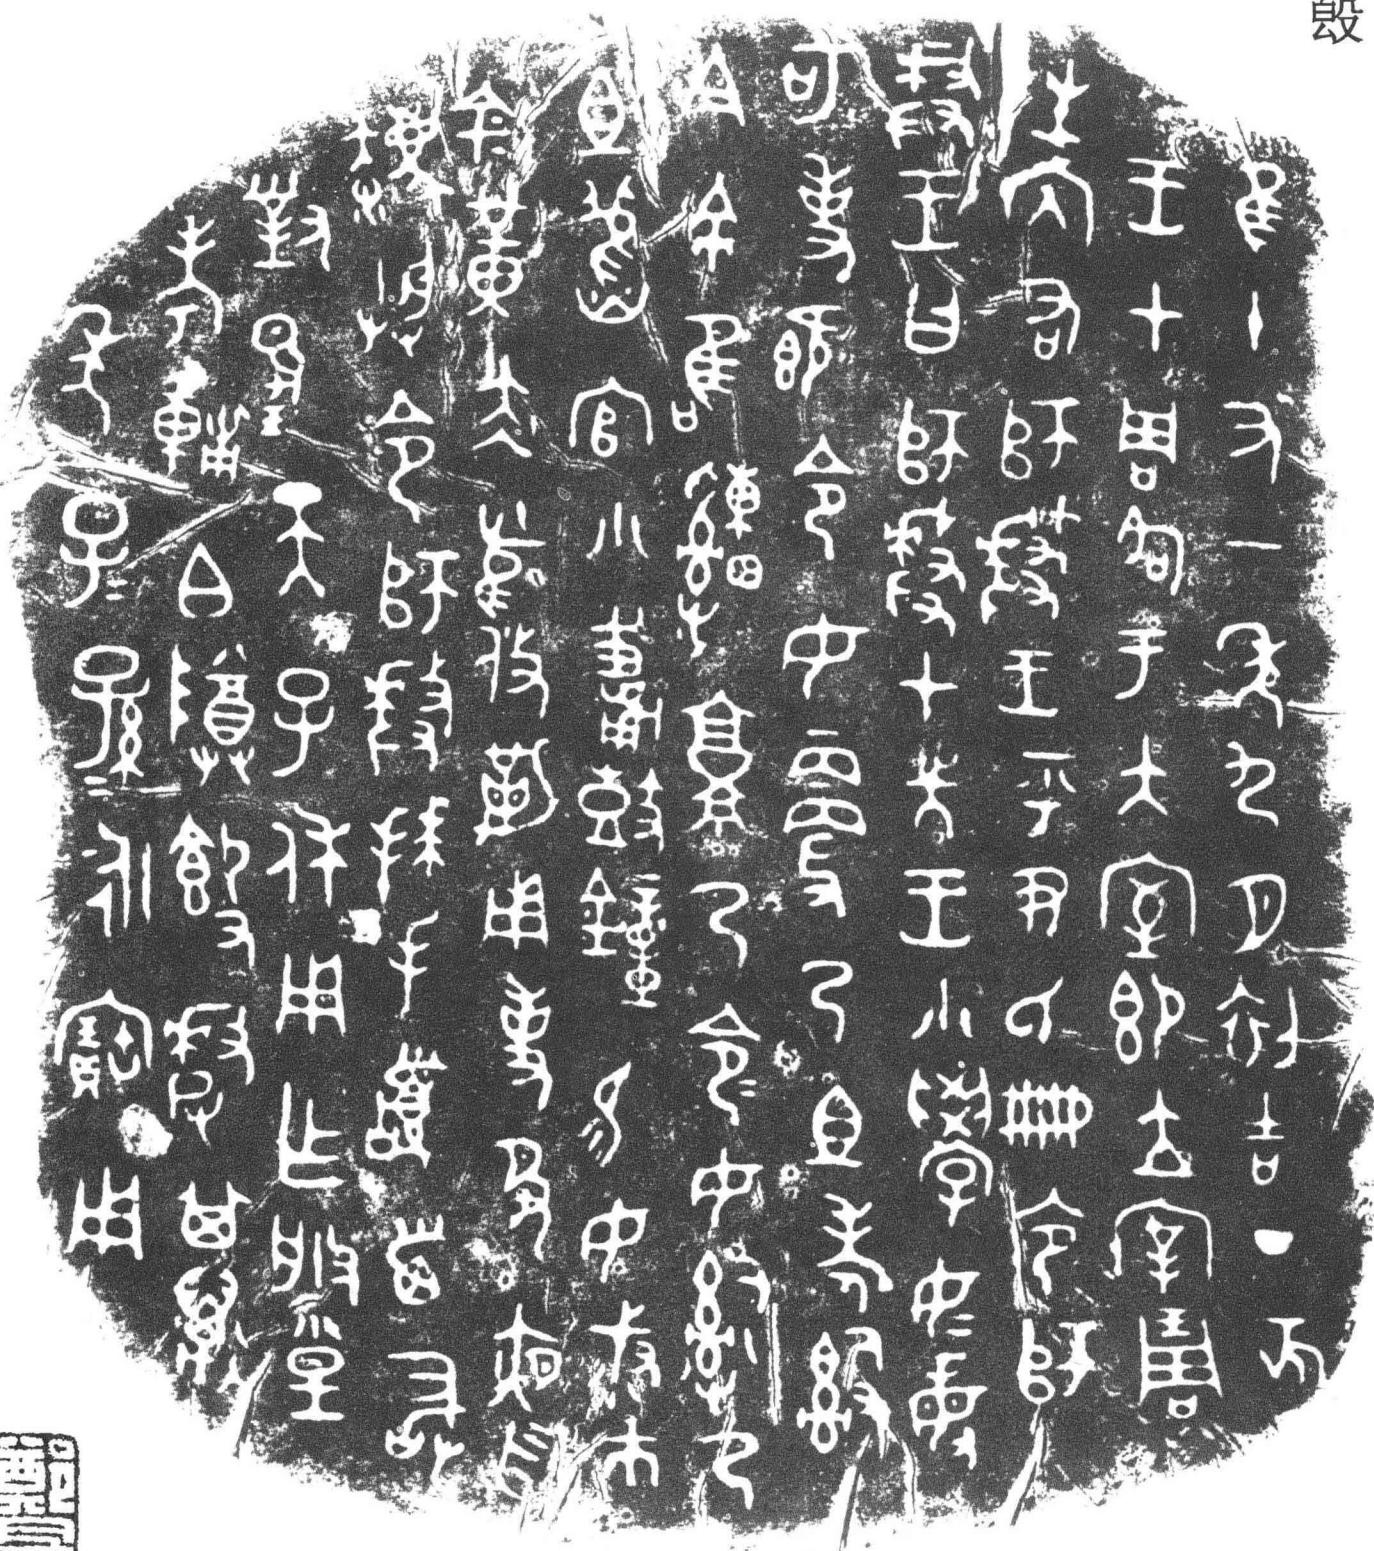 𣪘
隹十又一年九月初吉丁亥
王才周各于大室即立宰琱
生內右師𠭰王乎尹氏冊令師
𠭰王曰師𠭰才先王小學女女敏
可吏既令女更乃且考𤔲
今余隹𤕌𩫏乃令令女𤔲乃
且舊官小輔鼓鐘易女叔巿
金黃赤舄攸勒用事敬夙
夜勿灋朕令師𠭰拜手𩒨首敢
對揚天子休用乍朕皇
考輔白𨻰𣪘𠭰其萬
年子子孫孫永寶用